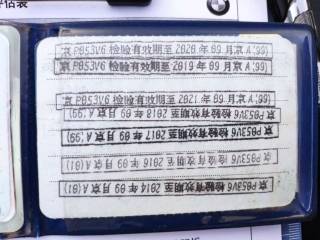 估表
京 P053V6 检验有效期至 2020 年 09 月京 A(99)
京 P053V6 检验有效期至 2019 年 09 月京 A(99)
京 P053V6 检验有效期至 2021 年 09 月京 A(99)
京 P053V6 检验有效期至 2018 年 09 月京 A(99)
京 P053V6 检验有效期至 2017 年 09 月京 A(99)
京 P053V6 检验有效期至 2016 年 09 月京 A(01)
京 P053V6 检验有效期至 2014 年 09 月京 A(01)